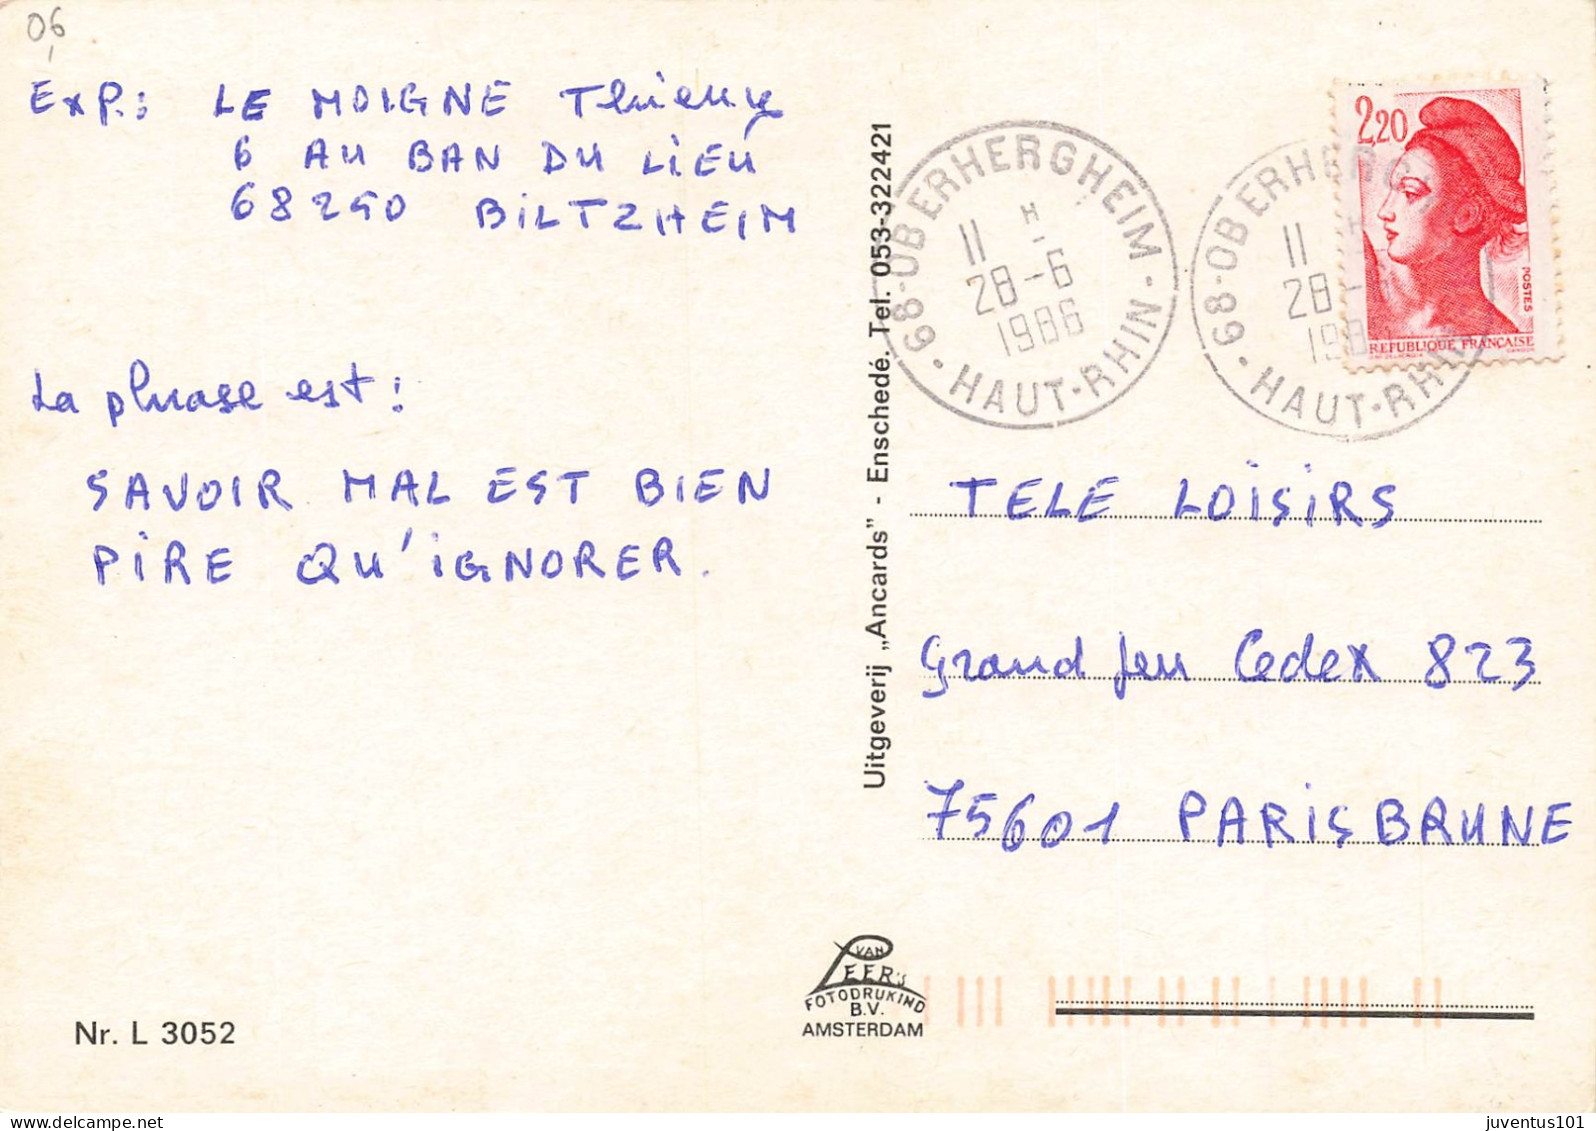 06
Exp.: LE MOIGNE Thierry
6 AU BAN DU LIEU
68250 BILTZHEIM
La phrase est :
SAVOIR MAL EST BIEN
PIRE QU'IGNORER.
Nr. L 3052
Uitgeverij „Ancards” - Enschedé. Tel. 053-322421
VAN
LEER'S
FOTODRUKIND
B.V.
AMSTERDAM
68-OBERHERGHEIM
11 H
28-6
1986
HAUT-RHIN
68-OBERHERG
11 H
28-
198
HAUT-RHIN
2,20
POSTES
REPUBLIQUE FRANÇAISE
TELE LOISIRS
Grand jeu Cedex 823
75601 PARIS BRUNE
juventus101